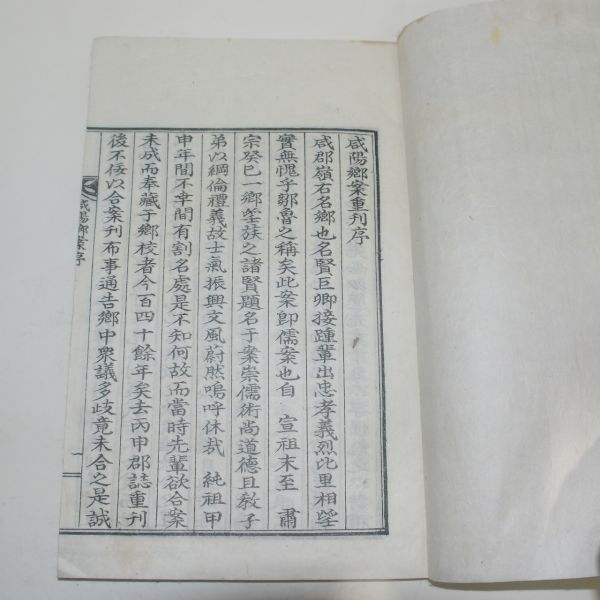 咸陽鄉案重刊序
咸郡嶺右名鄉也名賢巨卿接踵輩出忠孝義烈比里相望
實無愧乎鄒魯之稱矣此案卽儒案也自 宣祖末至 肅
宗癸巳一鄉望族之諸賢題名于案崇儒術尚道德且敎子
弟以綱倫禮義故士氣振興文風蔚然嗚呼休哉 純祖甲
申年間不幸間有割名處是不知何故而當時先輩欲合案
未成而奉藏于鄉校者今百四十餘年矣去丙申郡誌重刊
後不佞以合案刊布事通告鄉中衆議多歧竟未合之是誠
咸陽鄉案序
一